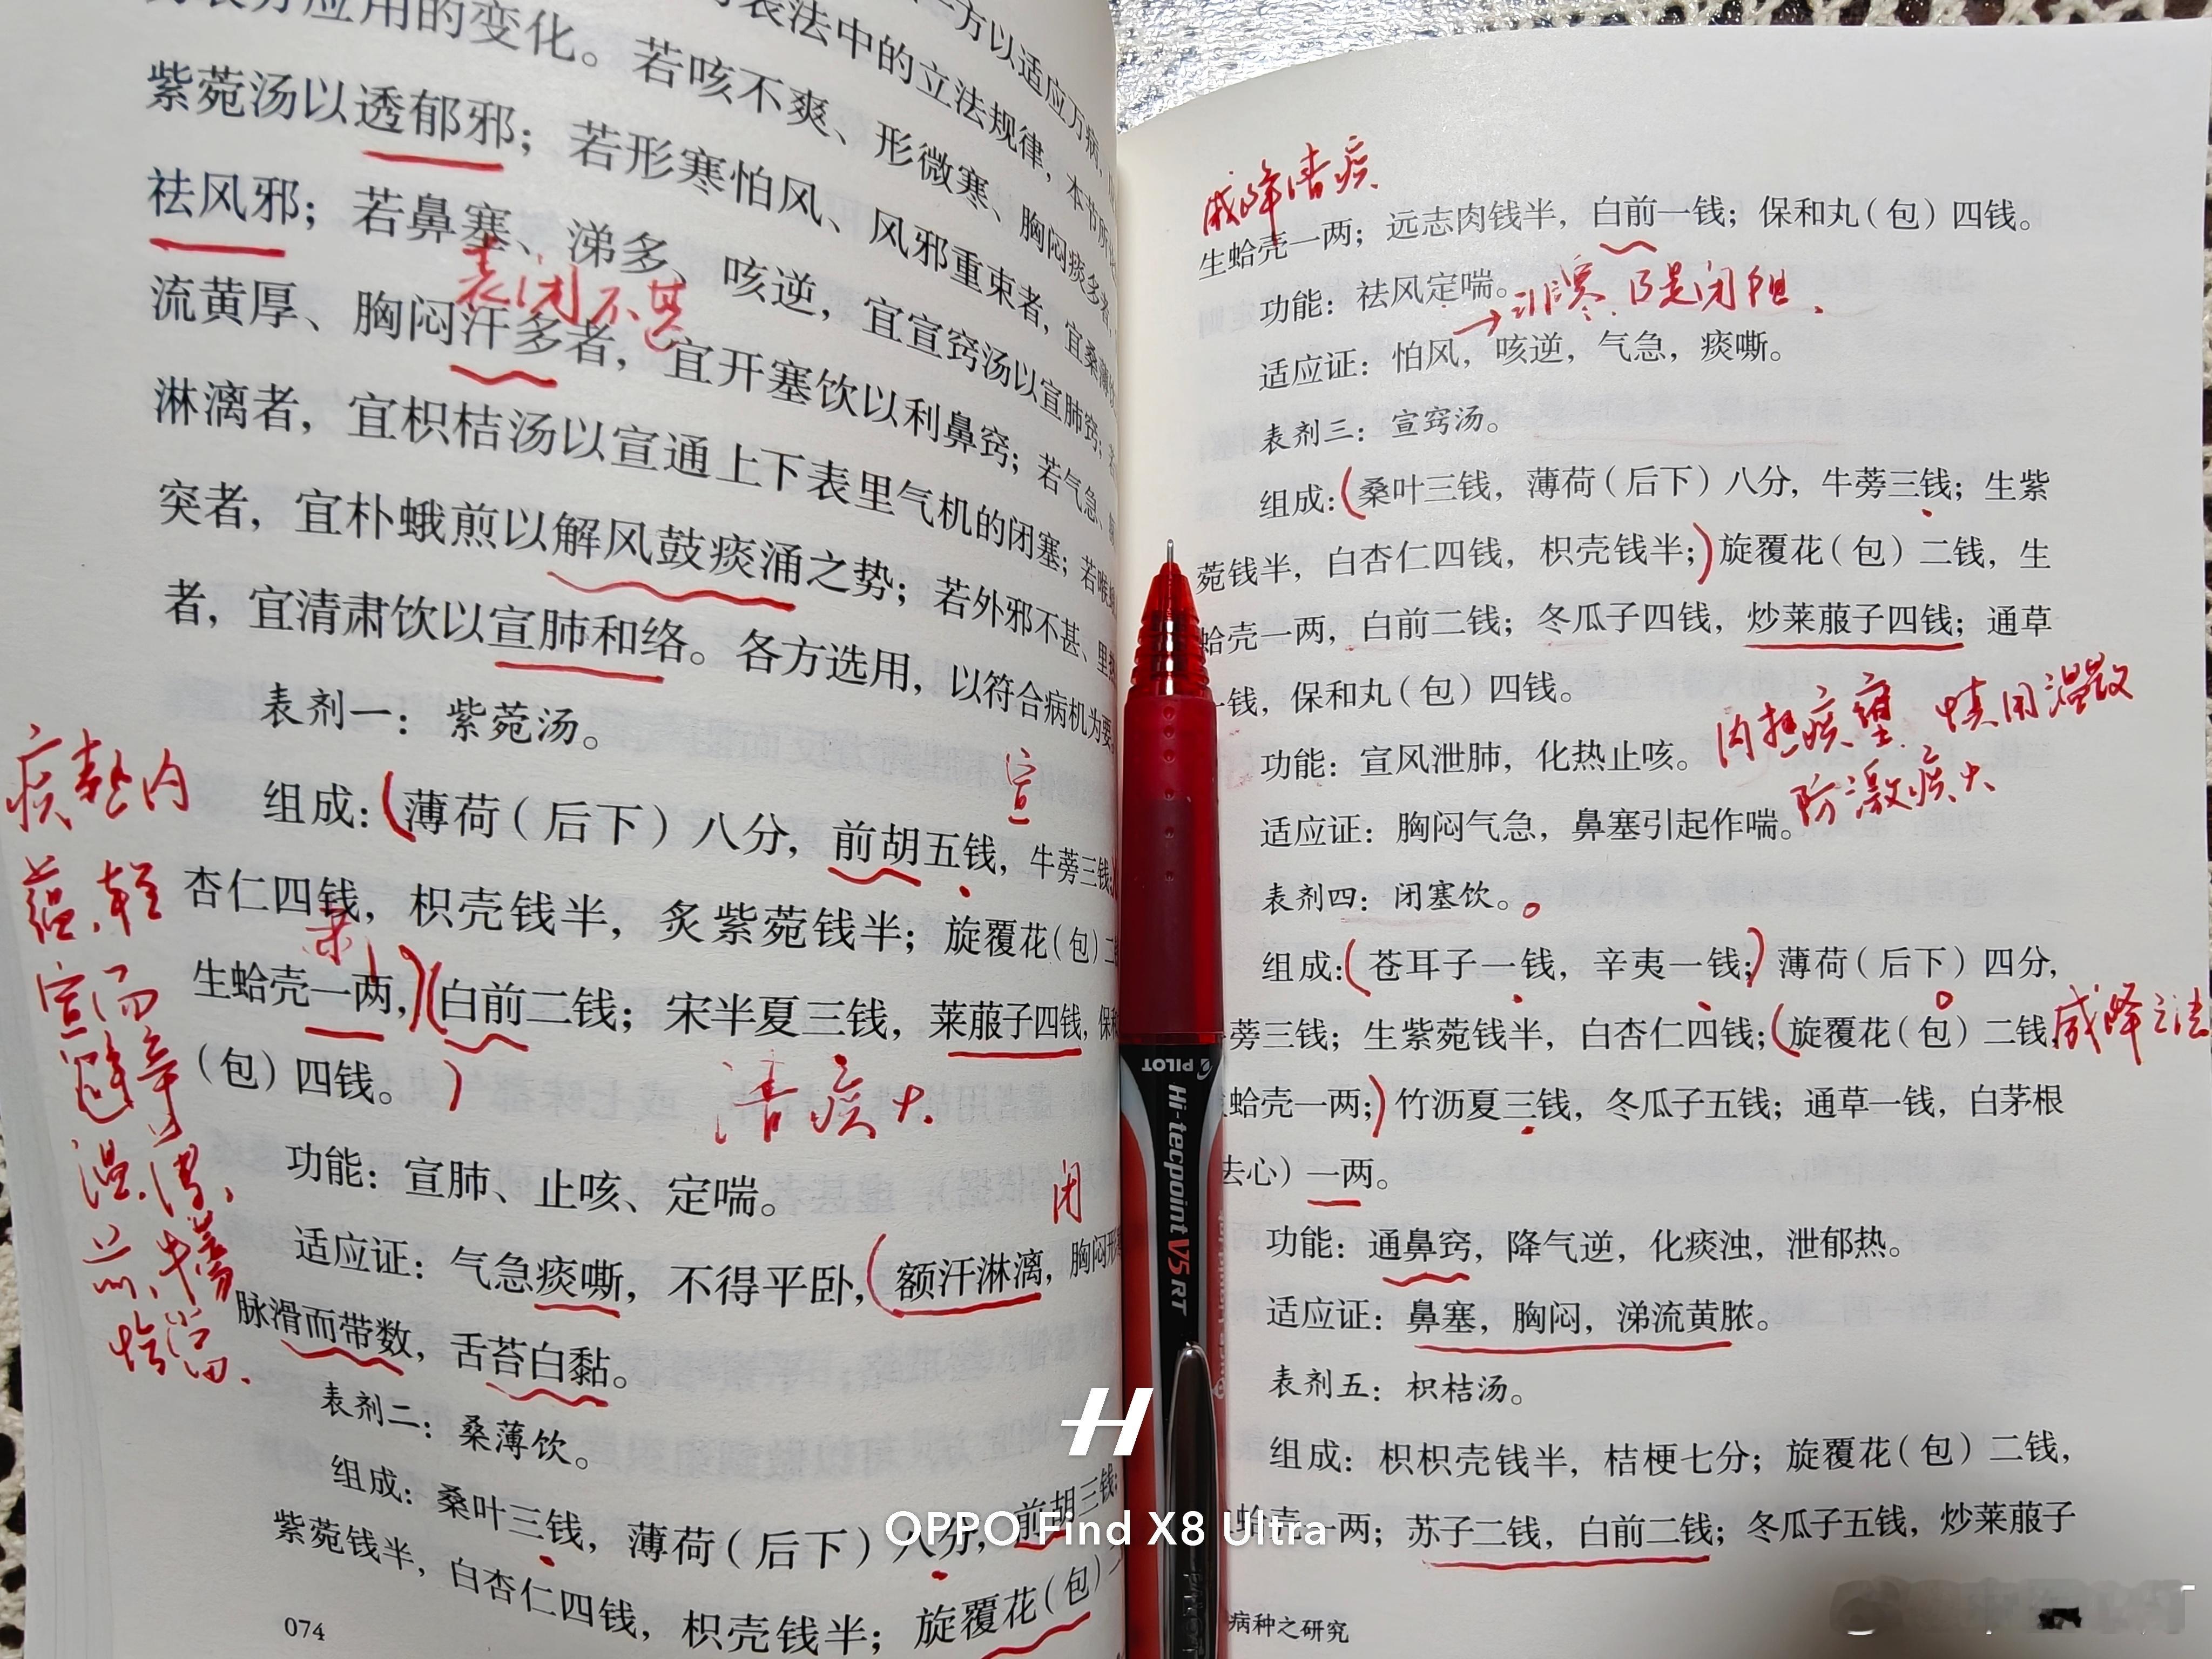 应用的变化。若咳不爽、形微寒、胸闷痰多者,
紫菀汤以透郁邪；若形寒怕风、风邪重束者，宜桑薄饮
祛风邪；若鼻塞、涕多、咳逆，宜宣窍汤以宣肺窍；
表闭不甚
流黄厚、胸闷汗多者，宜开塞饮以利鼻窍；若气急、
淋漓者，宜枳桔汤以宣通上下表里气机的闭塞；若喉
突者，宜朴蛾煎以解风鼓痰涌之势；若外邪不甚、里
者，宜清肃饮以宣肺和络。各方选用，以符合病机为要
表剂一：紫菀汤。
宣
组成：(薄荷（后下）八分，前胡五钱，牛蒡三钱
杏仁四钱，枳壳钱半，炙紫菀钱半；旋覆花（包）二
生蛤壳一两，)(白前二钱；宋半夏三钱，莱菔子四钱，保
（包）四钱。)
清痰火
功能：宣肺、止咳、定喘。
闭
适应证：气急痰嘶，不得平卧，(额汗淋漓，胸闷形
脉滑而带数，舌苔白黏。
表剂二：桑薄饮。
组成：桑叶三钱，薄荷（后下）八分，前胡三钱
紫菀钱半，白杏仁四钱，枳壳钱半；旋覆花（包）
074
痰热内
蕴,轻
宣而
避辛
温,薄,
前,牛蒡
恰当.
咸降清痰
生蛤壳一两；远志肉钱半，白前一钱；保和丸（包）四钱。
功能：祛风定喘。
→非寒,乃是闭阻.
适应证：怕风，咳逆，气急，痰嘶。
表剂三：宣窍汤。
组成：(桑叶三钱，薄荷（后下）八分，牛蒡三钱；生紫
菀钱半，白杏仁四钱，枳壳钱半；)旋覆花（包）二钱，生
蛤壳一两，白前二钱；冬瓜子四钱，炒莱菔子四钱；通草
一钱，保和丸（包）四钱。
功能：宣风泄肺，化热止咳。
内热痰壅,慎用温散
防激痰火
适应证：胸闷气急，鼻塞引起作喘。
表剂四：闭塞饮。
组成：(苍耳子一钱，辛夷一钱；)薄荷（后下）四分，
蒡三钱；生紫菀钱半，白杏仁四钱；(旋覆花（包）二钱，
咸降之法
蛤壳一两；)竹沥夏三钱，冬瓜子五钱；通草一钱，白茅根
去心）一两。
功能：通鼻窍，降气逆，化痰浊，泄郁热。
适应证：鼻塞，胸闷，涕流黄脓。
表剂五：枳桔汤。
组成：枳枳壳钱半，桔梗七分；旋覆花（包）二钱，
蛤壳一两；苏子二钱，白前二钱；冬瓜子五钱，炒莱菔子
病种之研究
PILOT
Hi-tecpoint V5 RT
H
OPPO Find X8 Ultra